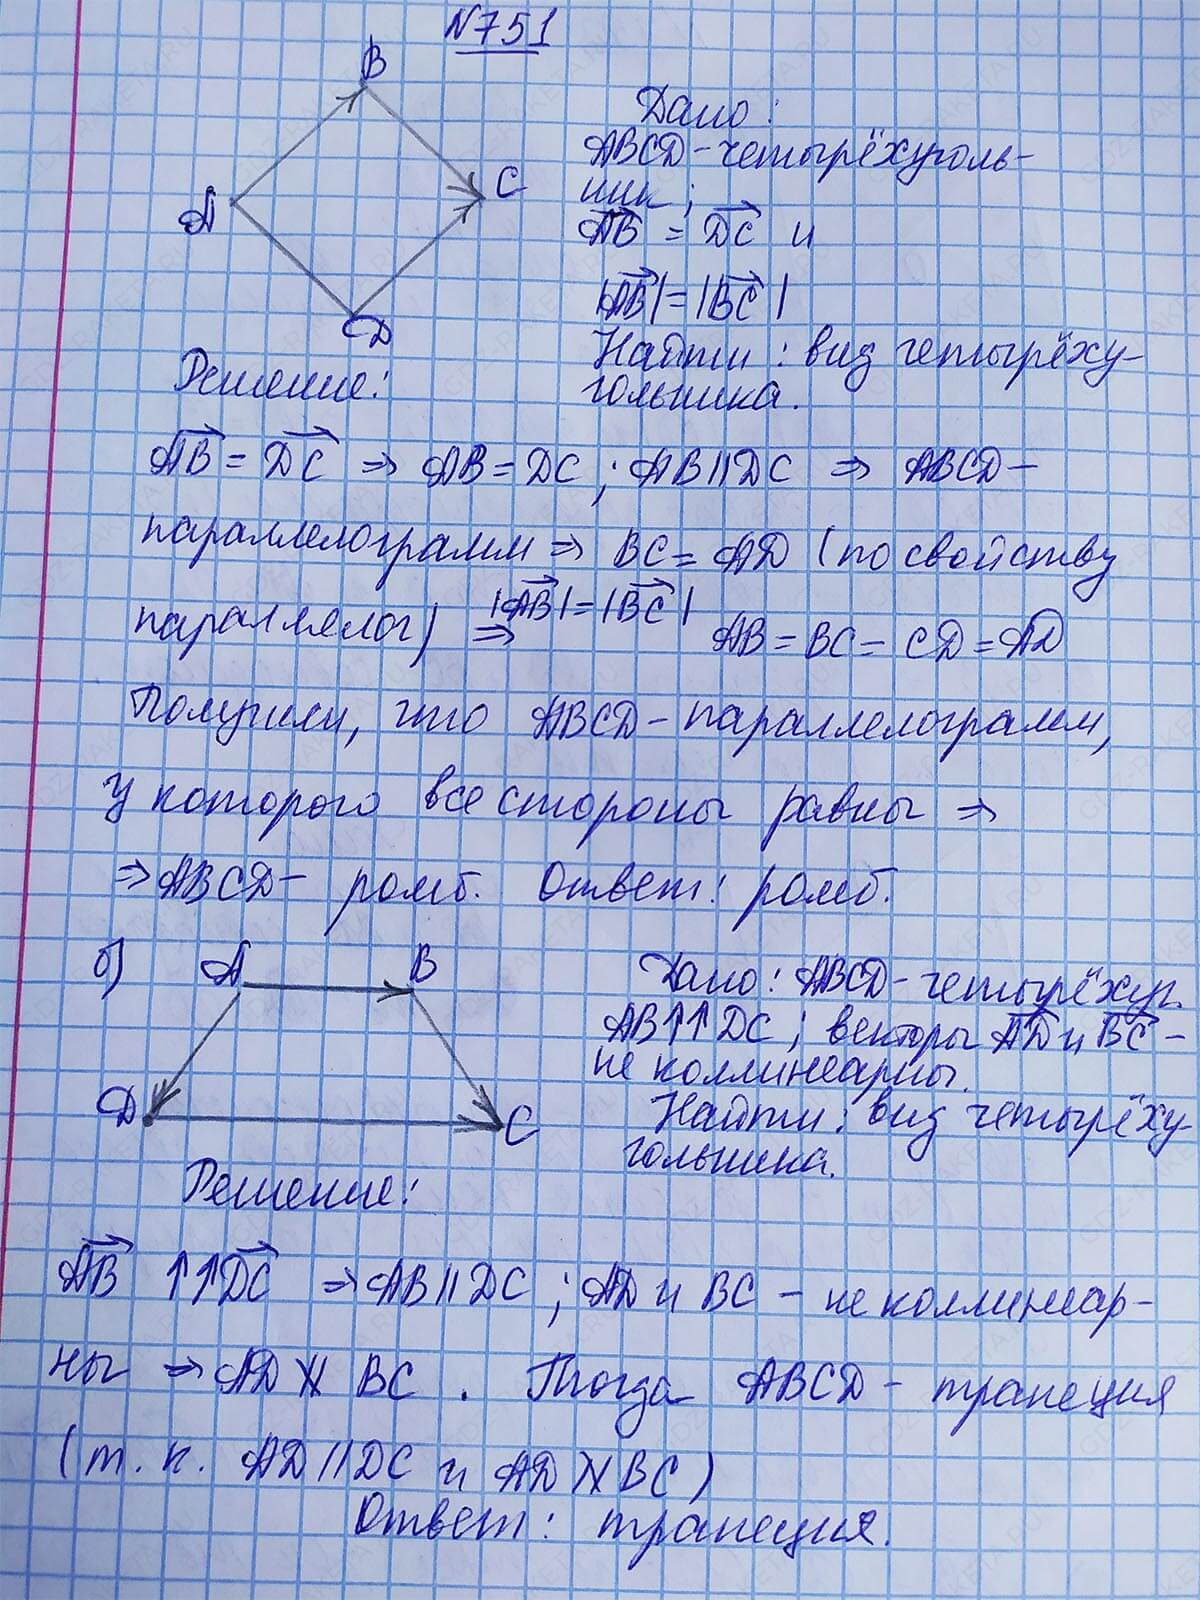 N751
B
A
C
D
Дано:
ABCD-четырёхуголь-
ник;
AB = DC и
|AB|=|BC|
Найти: вид четырёху-
гольника.
Решение:
AB = DC ⇒ AB=DC; AB∥DC ⇒ ABCD-
параллелограмм ⇒ BC=AD (по свойству
параллелог) ⇒ |AB|=|BC| AB=BC=CD=AD
Получили, что ABCD-параллелограмм,
у которого все стороны равны ⇒
⇒ABCD- ромб. Ответ: ромб.
б)
A
B
D
C
Дано: ABCD-четырёхуг.
AB↑↑DC; векторы AD и BC-
не коллинеарны.
Найти: вид четырёху-
гольника.
Решение:
AB ↑↑DC ⇒AB∥DC; AD и BC - не коллинеар-
ны ⇒ AD ∦ BC. Тогда ABCD-трапеция
(т.к. AD∥DC и AD∦BC)
Ответ: трапеция.